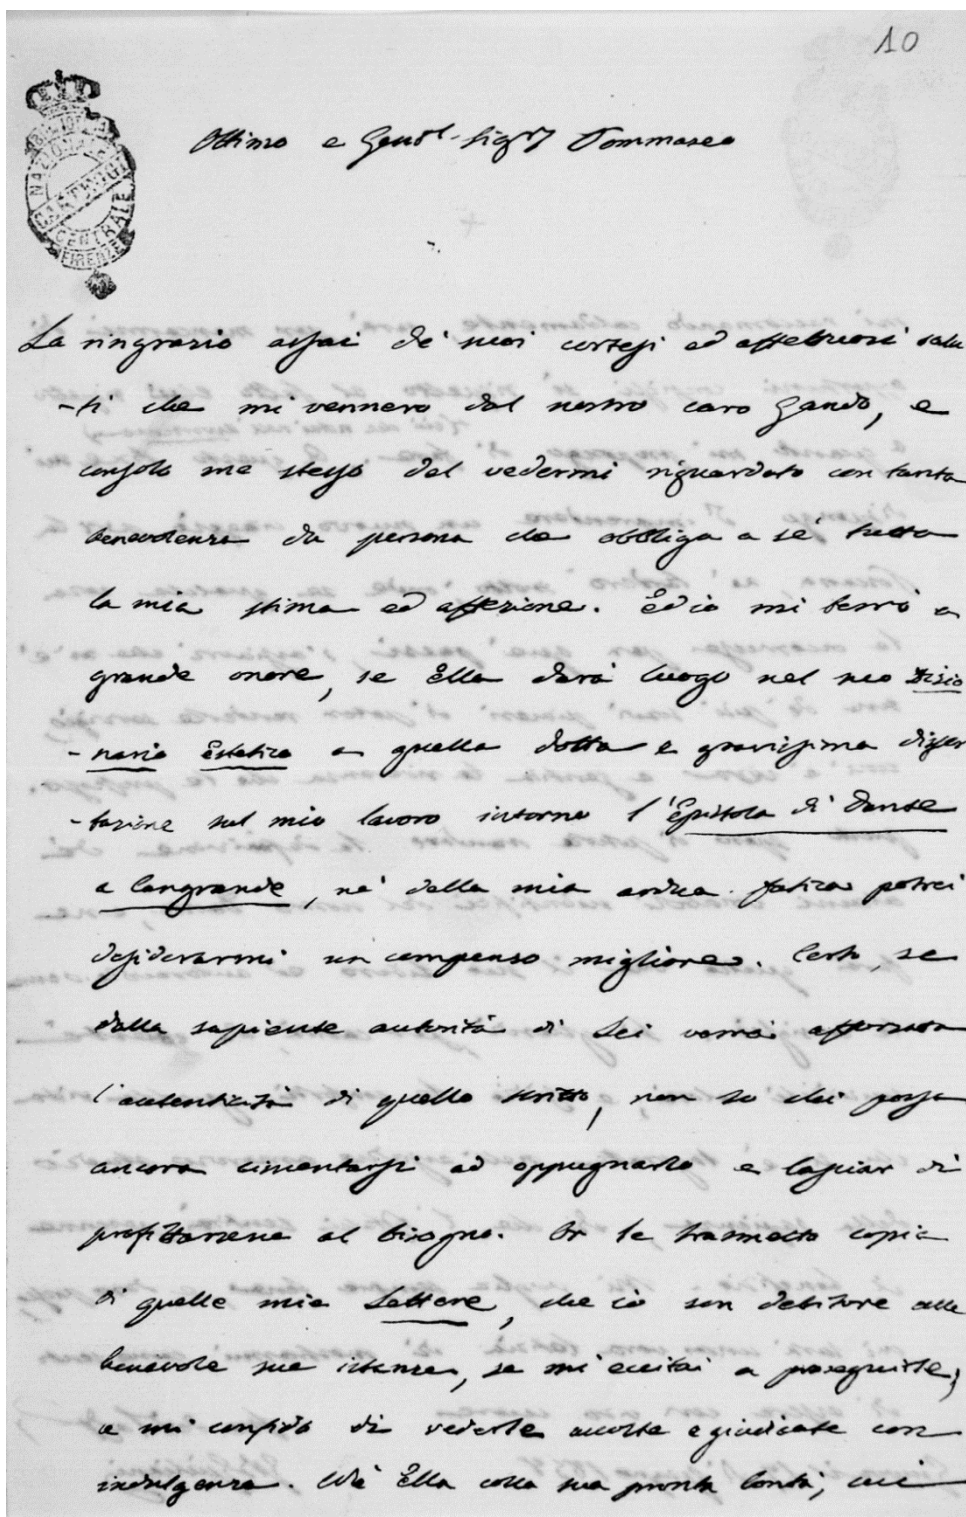 10
BIBLIOTECA
NAZIONALE
CARTEGGI
CENTRALE
FIRENZE
Ottimo e Gentl. Sigr Tommaseo
La ringrazio assai de' suoi cortesi ed affettuosi salu
-ti che mi vennero dal nostro caro Gando, e
consolo me stesso del vedermi riguardato con tanta
benevolenza da persona che obbliga a sé tutta
la mia stima ed affezione. Ed io mi terrò a
grande onore, se Ella darà luogo nel suo Dizio
-nario Estetico a quella dotta e gravissima disser
-tazione sul mio lavoro intorno l'Epistola di Dante
a Cangrande, né della mia ardua fatica potrei
desiderarmi un compenso migliore. Certo, se
dalla sapiente autorità di Lei verrà afforzata
l'autenticità di quello scritto, non so chi possa
ancora cimentarsi ad oppugnarlo e lasciar di
profittarsene al bisogno. Or le trasmetto copia
di quelle mie Lettere, che io son debitore alle
benevole sue istanze, se mi eccitai a proseguirle;
e mi confido di vederle accolte e giudicate con
indulgenza. Ed Ella colla sua pronta bontà, cui